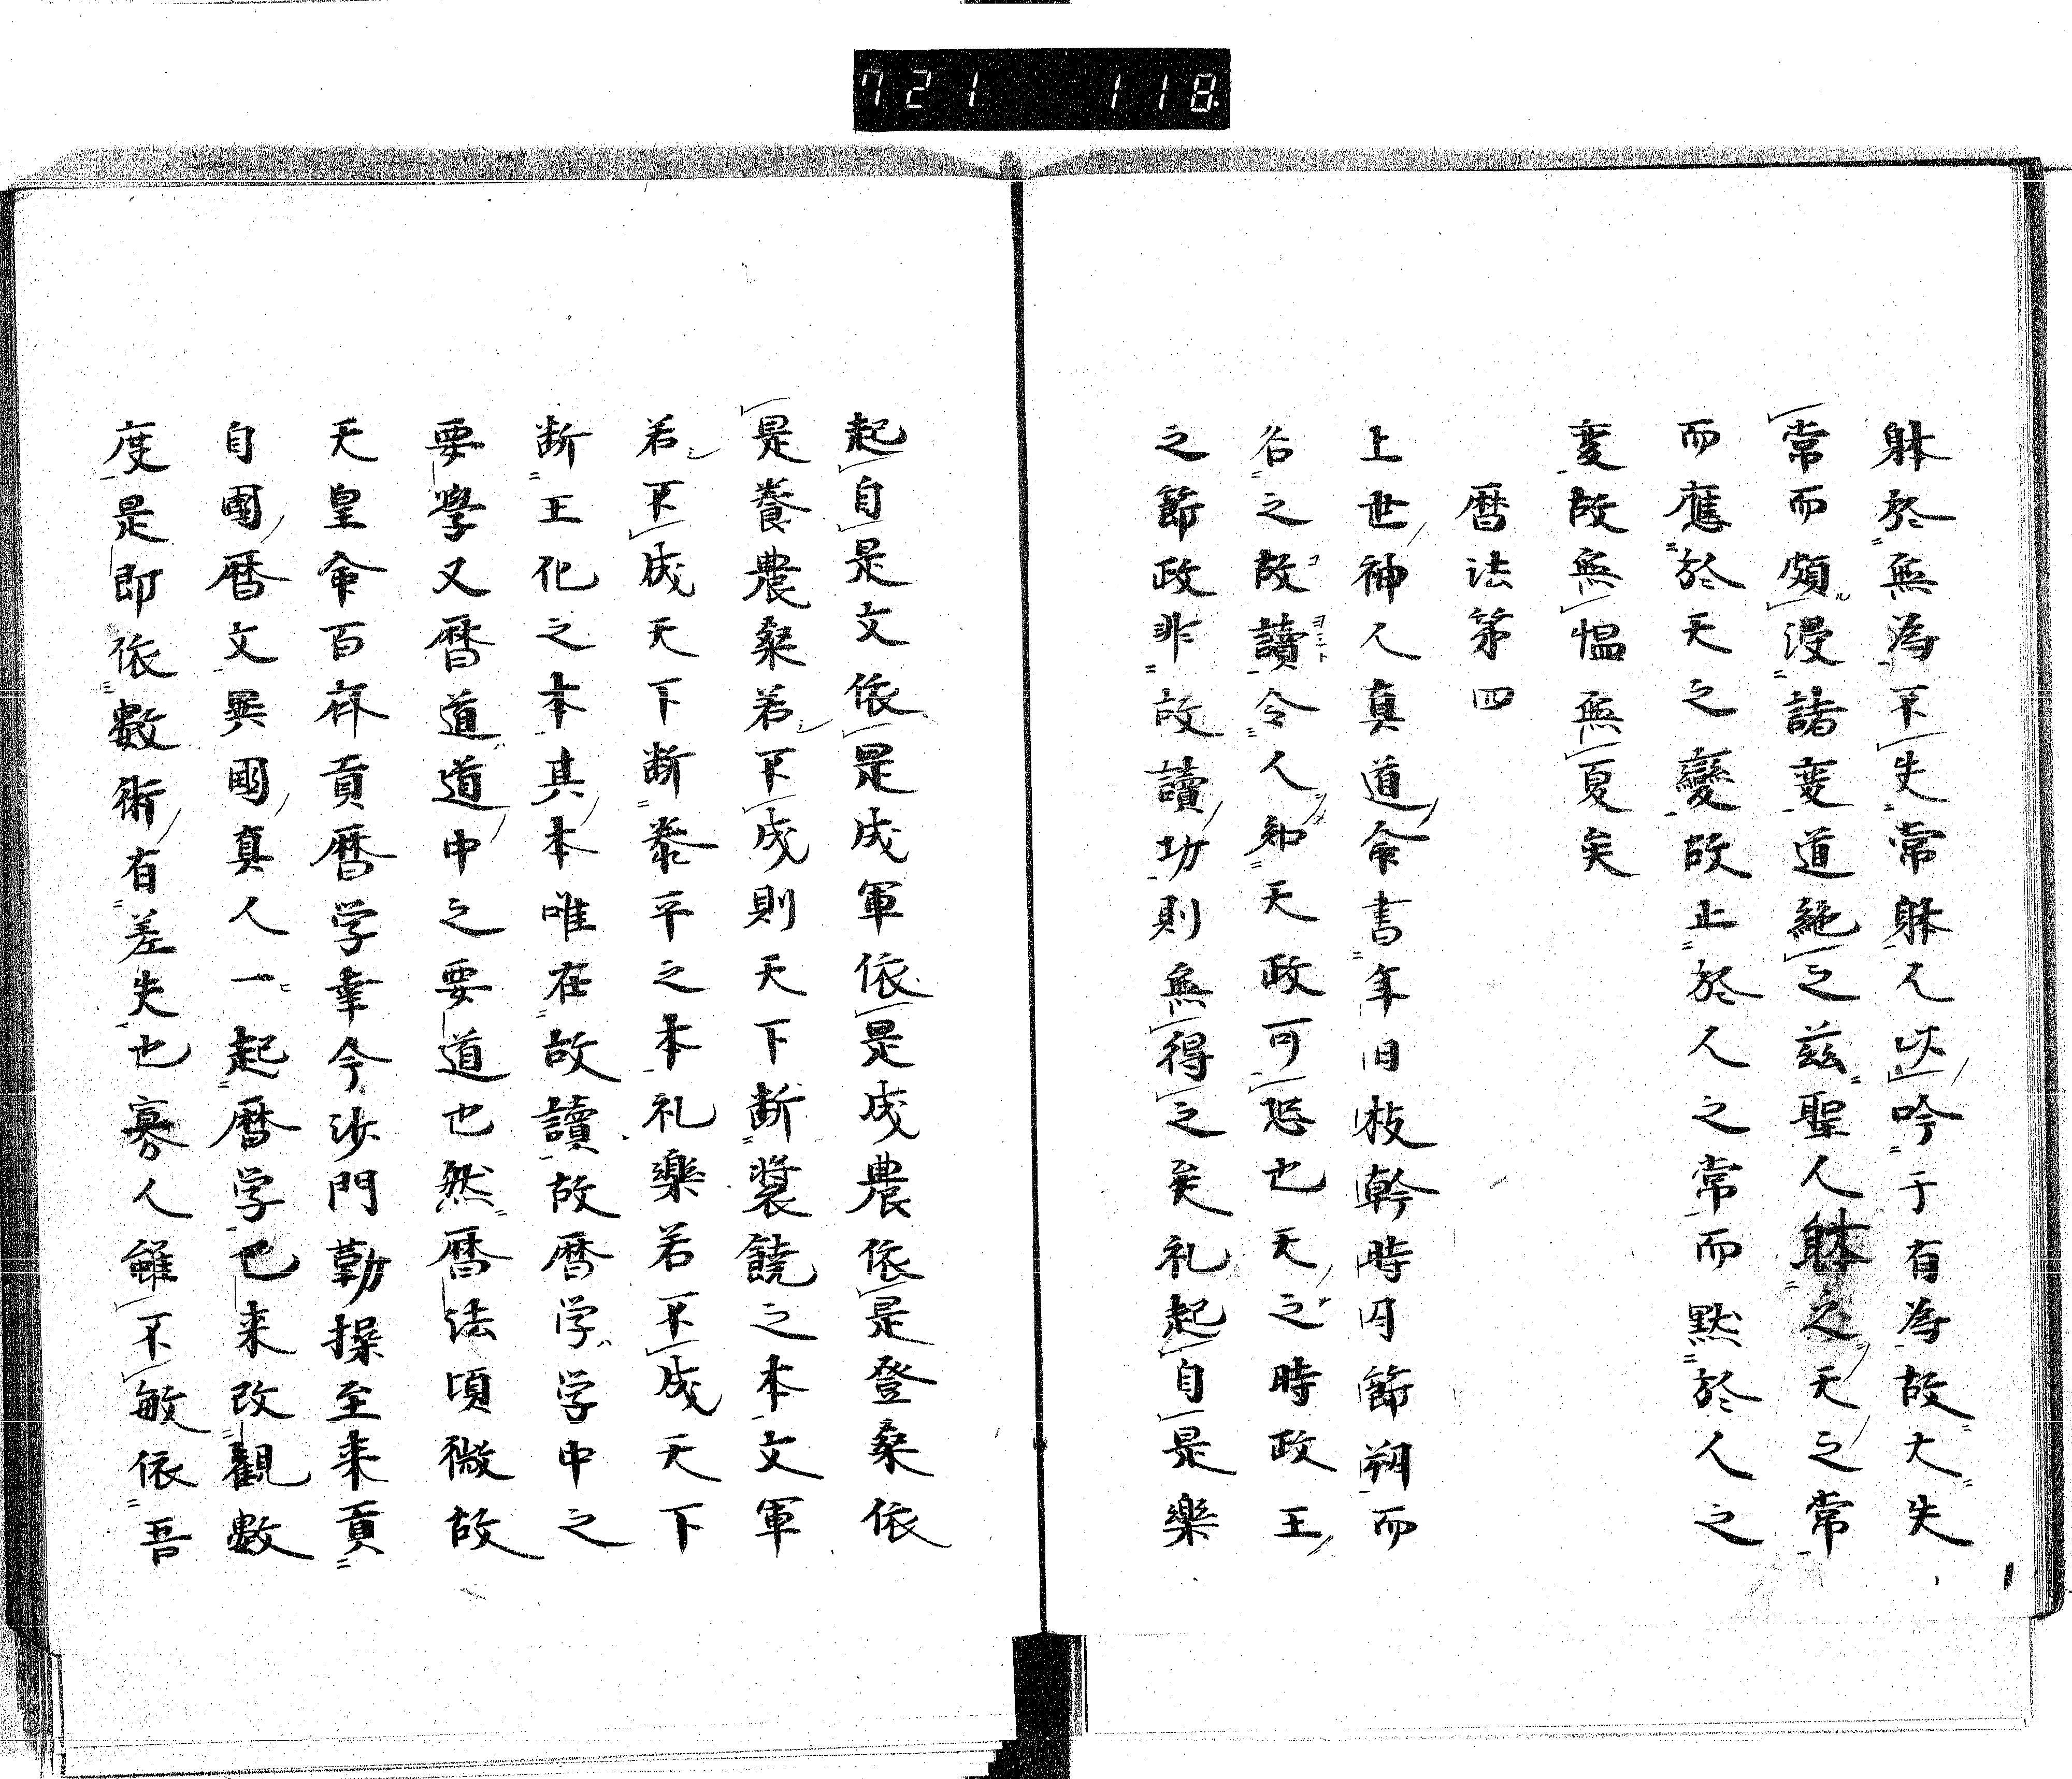 721 118
躰於無為不失常躰人犾吟于有為故大失
常而頗浸諸変道絶之茲聖人躰之天之常
而應於天之變故止於人之常而黙於人之
変故無愠無夏矣
暦法第四
上世神人真道命書年旧枝幹時円節朔而
名之故讀令人知天政可恐也天之時政王
之節政非故讀功則無得之矣礼起自是樂
起自是文依是成軍依是成農依是登桒依
是養農桒若不成則天下断裳饒之本文軍
若不成天下断泰平之本礼樂若不成天下
断王化之本其本唯在故讀故暦学学中之
要學又暦道道中之要道也然暦法頃微故
天皇命百斉貢暦学幸今沙門勤操至来貢
自國暦文異國真人一起暦学已来改觀數
度是即依數術有差失也寡人雖不敏依吾